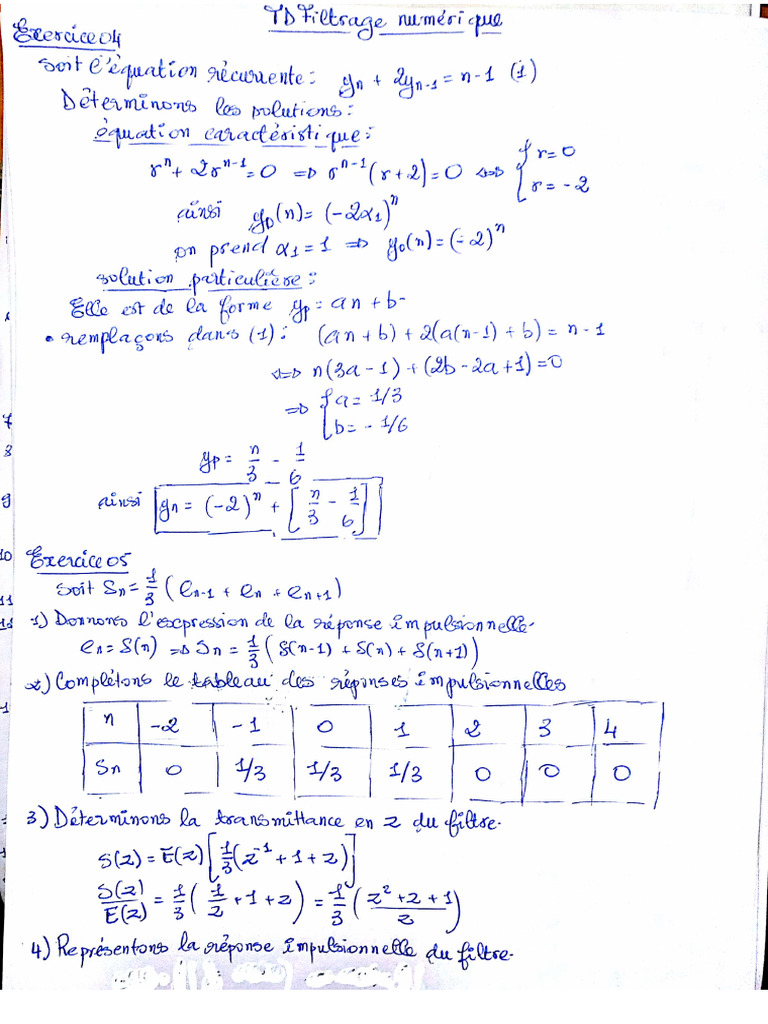 TD Filtrage numérique
Exercice 04
Soit l'équation récurrente: yn + 2yn-1 = n-1 (1)
Déterminons les solutions:
équation caractéristique:
r^n + 2r^n-1 = 0 => r^n-1 (r+2) = 0 <=> { r = 0
r = -2
ainsi y0(n) = (-2α1)^n
on prend α1 = 1 => y0(n) = (-2)^n
solution particulière:
Elle est de la forme yp = an + b
• remplaçons dans (1): (an+b) + 2(a(n-1)+b) = n-1
<=> n(3a-1) + (2b-2a+1) = 0
=> { a = 1/3
b = -1/6
yp = n/3 - 1/6
ainsi yn = (-2)^n + [n/3 - 1/6]
7
8
9
10
11
Exercice 05
Soit Sn = 1/3 (en-1 + en + en+1)
1) Donnons l'expression de la réponse impulsionnelle.
en = δ(n) => Sn = 1/3 (δ(n-1) + δ(n) + δ(n+1))
2) Complétons le tableau des réponses impulsionnelles
n -2 -1 0 1 2 3 4
Sn 0 1/3 1/3 1/3 0 0 0
3) Déterminons la transmittance en z du filtre.
S(z) = E(z) [1/3 (z^-1 + 1 + z)]
S(z)/E(z) = 1/3 (1/z + 1 + z) = 1/3 ((z^2 + z + 1)/z)
4) Représentons la réponse impulsionnelle du filtre.